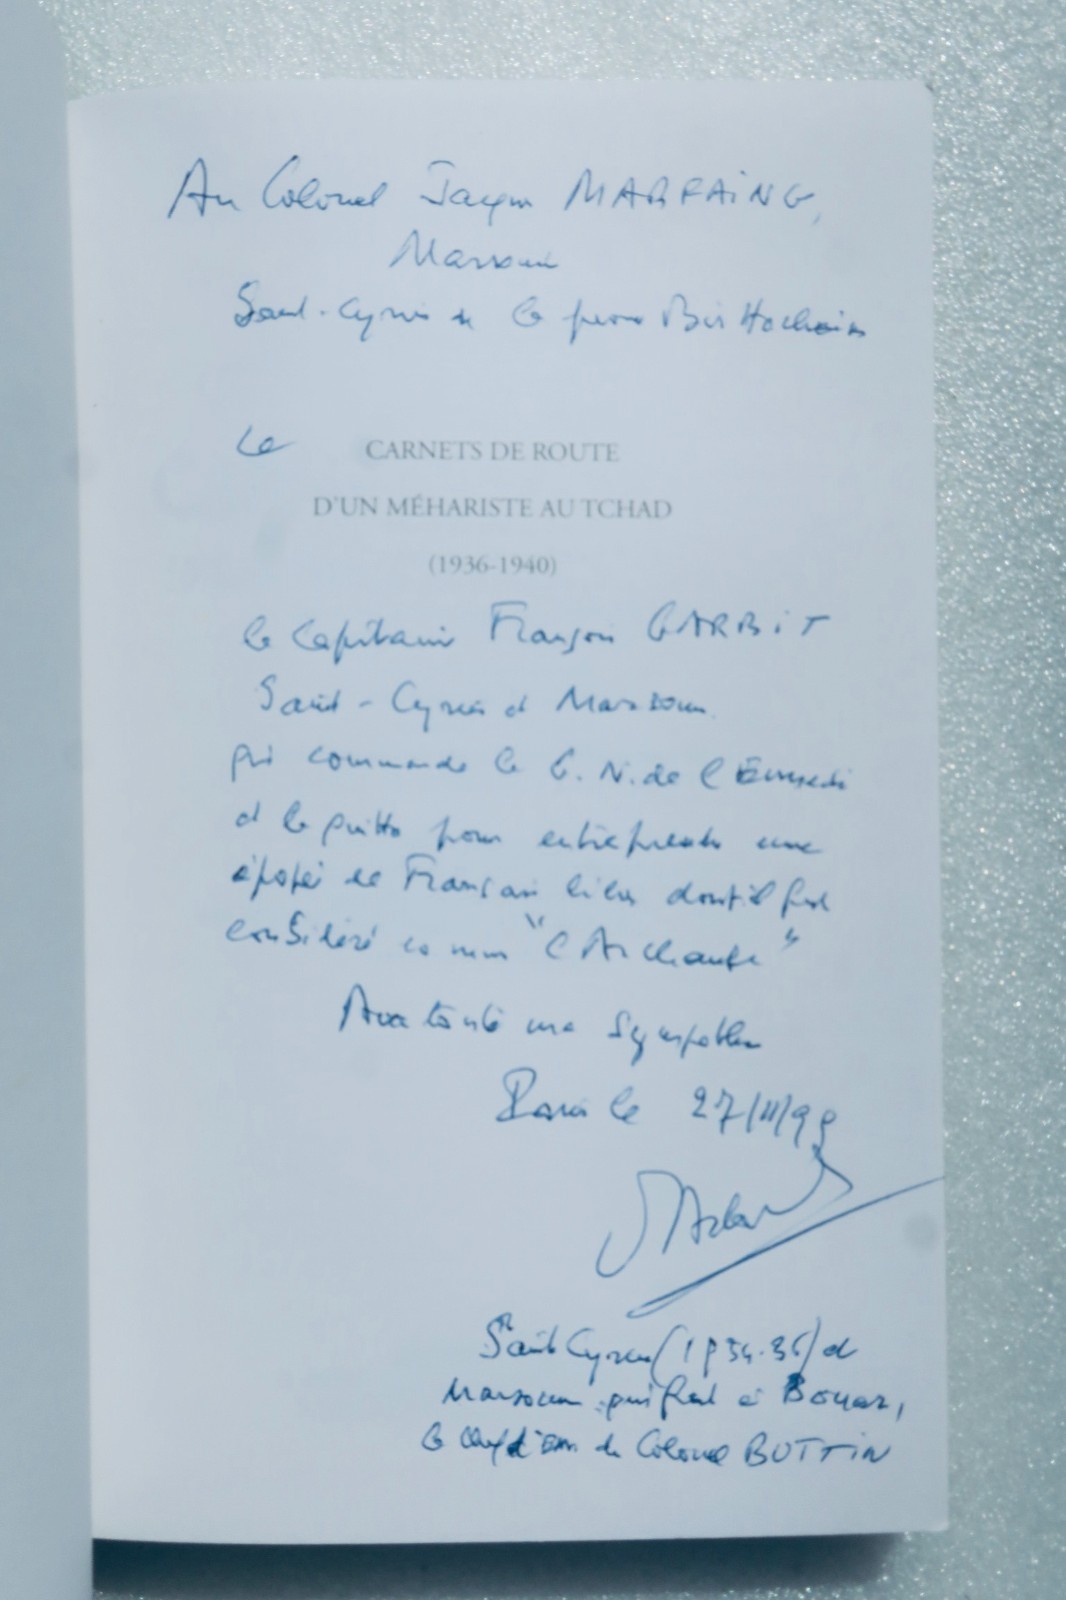 Au Colonel Jacques MARFAING,
Marsouin
Saint-Cyrien de la promo Bir Hacheim
Ce
CARNETS DE ROUTE
D'UN MÉHARISTE AU TCHAD
(1936-1940)
le Capitaine François GARBIT
Saint-Cyrien et Marsouin
qui commanda le G. N. de l'Ennedi
et le quitta pour entreprendre une
épopée de Français libre dont il fut
considéré comme "l'Archange"
Avec toute ma sympathie
Paris le 27/11/99
Saint Cyrien (1934-36) et
Marsouin qui fut à Bouar,
le chef d'EM du Colonel BUTTIN